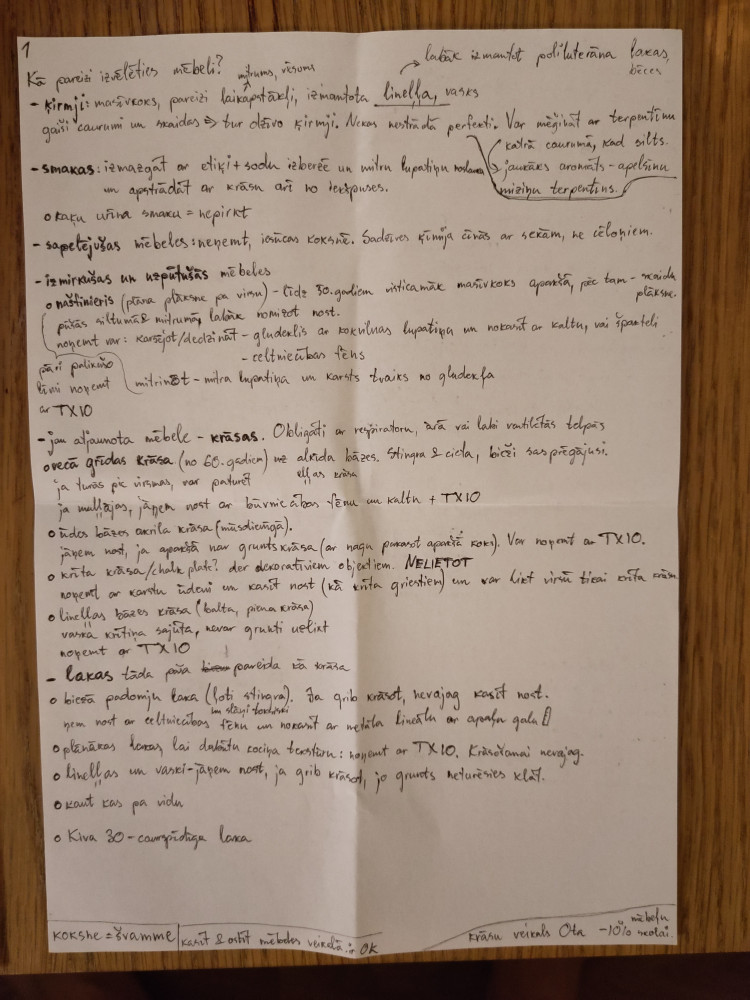 1
Kā pareizi izvēlēties mēbeli?
labāk izmantot poliuterāna lakas,
bēces
mitrums, vēsums
- ķirmji: masīvkoks, pareizi laikapstākļi, izmantota lineļļa, vasks
gaiši caurumi un skaidas ⇒ tur dzīvo ķirmji. Nekas nestrādā perfekti. Var mēģināt ar terpentīnu
katrā caurumā, kad silts.
- smakas: izmazgāt ar etiķi + sodu izberzē un mitru lupatiņu
jaukāks aromāts - apelsīnu
miziņu terpentīns.
un apstrādāt ar krāsu arī no iekšpuses.
o kaķu urīna smaku = nepirkt
- sapelējušas mēbeles: neņemt, iesūcas koksnē. Sadzīves ķīmija cīnās ar sekām, ne cēloņiem.
- izmirkušas un uzpūtušās mēbeles
o našinieris (plāna plāksne pa virsu) - līdz 30. gadiem visticamāk masīvkoks apakšā, pēc tam - skaidu
plāksne.
pūšas siltumā & mitrumā, labāk noņemt nost.
noņemt var: karsējot/dedzināt - gludeklis ar kokvilnas lupatiņu un nokasīt ar kaltu, vai špakteli
- celtniecības fēns
pāri palikušo
līmi noņemt
ar TX10
mitrinot - mitra lupatiņa un karsts tvaiks no gludekļa
- jau atjaunota mēbele - krāsas. Obligāti ar respiratoru, ārā vai labi ventilētās telpās
o vecā grīdas krāsa (no 60. gadiem) uz alkīda bāzes. Stingra & cieta, bieži sasprēgājusi.
eļļas krāsa
ja turās pie virsmas, var paturēt
ja muļļājas, jāņem nost ar būvniecības fēnu un kaltu + TX10
o ūdens bāzes akrila krāsa (mūsdienīgā).
jāņem nost, ja apakšā nav gruntskrāsa (ar nagu pakasot apakšā koks). Var noņemt ar TX10.
o krīta krāsa/chalk plate? der dekoratīviem objektiem. NELIETOT
noņemt ar karstu ūdeni un kasīt nost (kā krīta griestiem) un var likt virsū tikai krīta krāsu
o lineļļas bāzes krāsa (balta, piena krāsa)
vaska krītiņa sajūta, nevar grunti uzlikt
noņemt ar TX10
- lakas tāda paša pareida kā krāsa
o biezā padomju laka (ļoti stingra). Ja grib krāsot, nevajag kasīt nost.
ņem nost ar celtniecības fēnu un nokasīt ar metāla lineālu ar apaļu galu
o plānākas lakas, lai dabūtu kociņa tekstūru: noņemt ar TX10. Krāsošanai nevajag.
o lineļļas un vaski - jāņem nost, ja grib krāsot, jo grunts neturēsies klāt.
o kaut kas pa vidu
o Kiva 30 - caurspīdīga laka
kokshe = švamme
kasīt & ostīt mēbeles veikalā: OK
krāsu veikals Ota -10% skolai.
mēbeļu